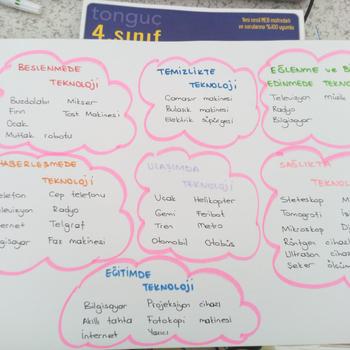 tonguç
4. sınıf
Yeni nesil MEB müfredatı
ve sorularına %100 uyumlu
BESLENMEDE
TEKNOLOJİ
Buzdolabı Mikser
Fırın Tost Makinesi
Ocak
Mutfak robotu
TEMİZLİKTE
TEKNOLOJİ
Çamaşır makinesi
Bulaşık makinesi
Elektrik süpürgesi
EĞLENME ve B
EDİNMEDE TEKNO
Televizyon müzik
Radyo
Bilgisayar
HABERLEŞMEDE
TEKNOLOJİ
elefon Cep telefonu
levizyon Radyo
ternet Telgraf
lgisayar Fax makinesi
ULAŞIMDA
TEKNOLOJİ
Uçak Helikopter
Gemi Feribot
Tren Metro
Otomobil Otobüs
SAĞLIKTA
TEKNOLO
Steteskop M
Tomografi İş
Mikroskop Di
Röntgen cihazı
Ultrason cihazı
Şeker ölçüm
EĞİTİMDE
TEKNOLOJİ
Bilgisayar Projeksiyon cihazı
Akıllı tahta Fotokopi makinesi
İnternet Yazıcı